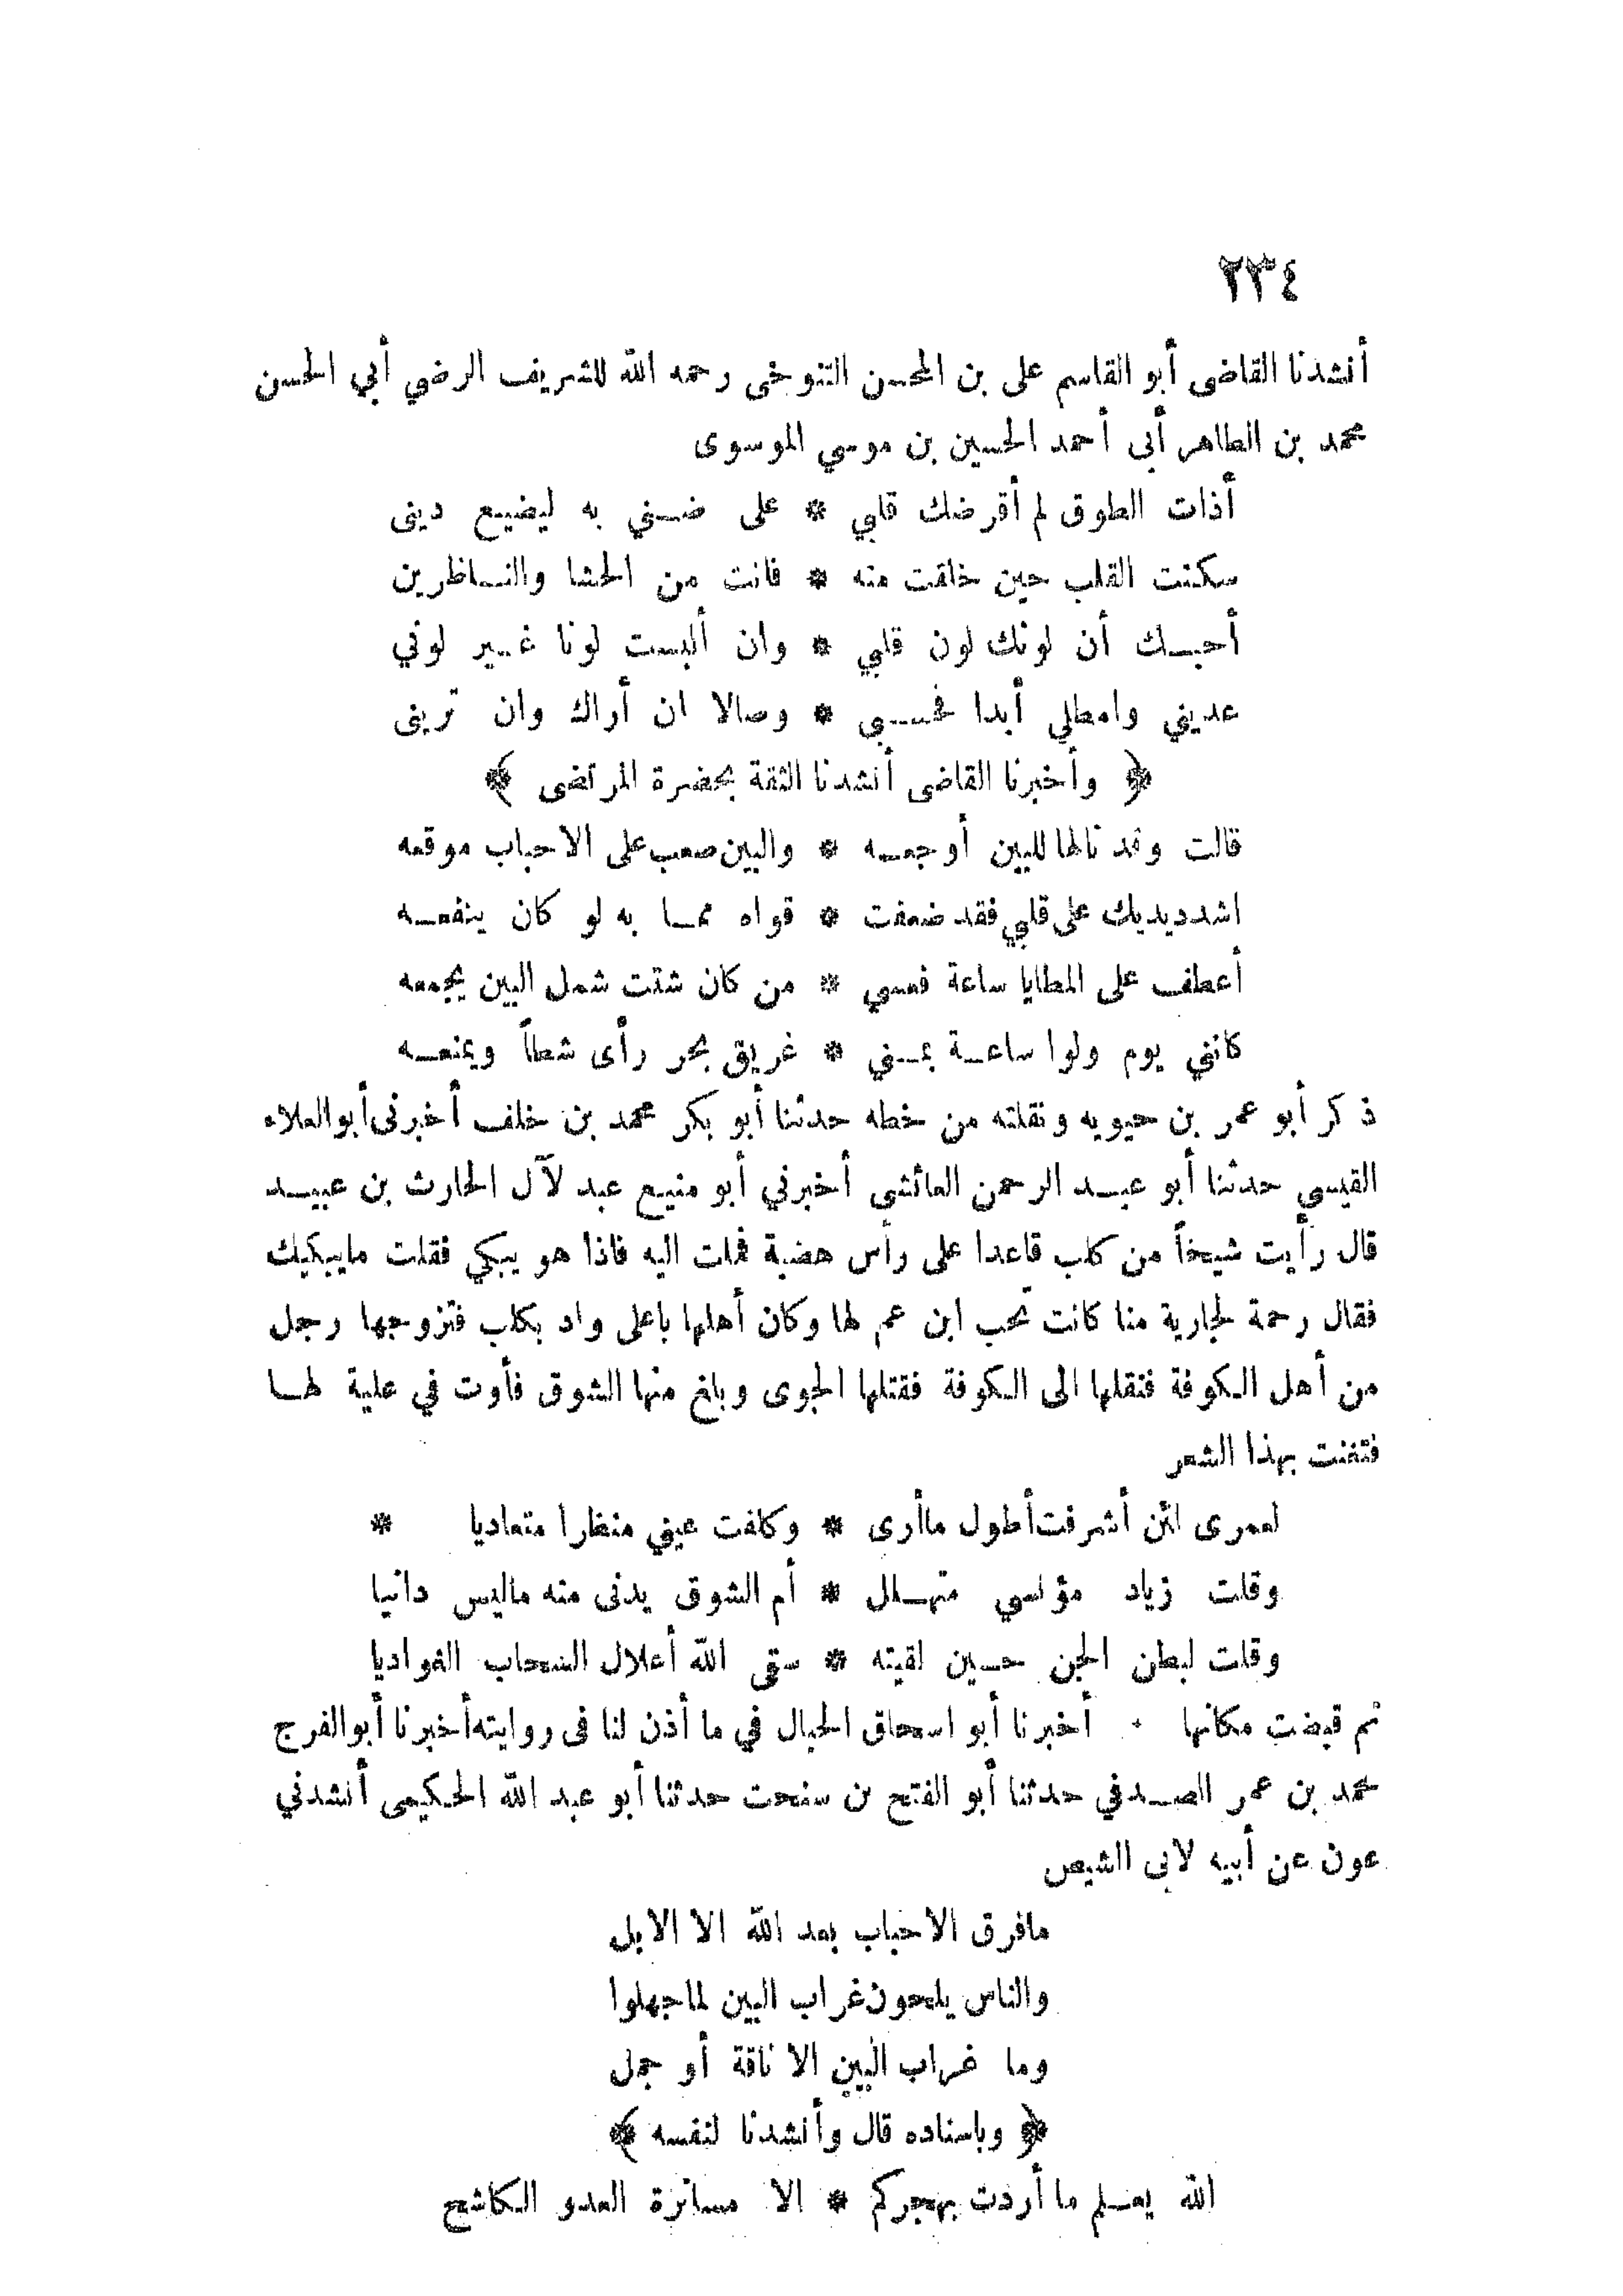 ٢٣٤
أنشدنا القاضى أبو القاسم على بن المحسن التنوخى رحمه الله للشريف الرضي أبي الحسن
محمد بن الطاهر أبى أحمد الحسين بن موسي الموسوى
أذات الطوق لم أقرضك قلبي * على ضـني به ليضيـع دينى
سكنت القلب حين خلقت منه * فانت من الحشا والنـاظرين
أحبـك أن لونك لون قلبي * وان ألبست لونا غـير لوني
عديني وامطلي أبدا فحسـبي * وصالا ان أراك وان ترينى
﴿ وأخبرنا القاضى أنشدنا الثقة بحضرة المرتضى ﴾
قالت وقد نالها للبين أوجعـه * والبين صعب على الاحباب موقعه
اشدد يديك على قلبي فقد ضعفت * قواه ممـا به لو كان ينفعـه
أعطف على المطايا ساعة فعسي * من كان شتت شمل البين يجمعه
كانني يوم ولوا ساعـة بمـني * غريق بحر رأى شطاً ويمنعـه
ذكر أبو عمر بن حيويه ونقلته من خطه حدثنا أبو بكر محمد بن خلف أخبرنى أبو العلاء
القيسي حدثنا أبو عبـد الرحمن العائشى أخبرني أبو منيـع عبد لآل الحارث بن عبيـد
قال رأيت شيخاً من كلب قاعدا على رأس هضبة فملت اليه فاذا هو يبكي فقلت مايبكيك
فقال رحمة لجارية منا كانت تحب ابن عم لها وكان أهلها باعلى واد بكلب فتزوجها رجل
من أهل الكوفة فنقلها الى الكوفة فقتلها الجوى وبلغ منها الشوق فأوت في علية لهـا
فتغنت بهذا الشعر
لعمرى لئن أشرفت أطول ماأرى * وكلفت عيني منظرا متعاديا *
وقلت زياد مؤنسي متهـلل * أم الشوق يدنى منه ماليس دانيا
وقلت لبطن الجن حـين لقيته * سقى الله أعلال السحاب الغواديا
ثم قبضت مكانها · أخبرنا أبو اسحاق الحبال في ما أذن لنا فى روايته أخبرنا أبو الفرج
محمد بن عمر الصـدفي حدثنا أبو الفتح بن سنحت حدثنا أبو عبد الله الحكيمى أنشدني
عون عن أبيه لابى الشيص
مافرق الاحباب بعد الله الا الابل
والناس يلحون غراب البين لما جهلوا
وما غراب البين الا ناقة أو جمل
﴿ وباسناده قال وأنشدنا لنفسه ﴾
الله يعـلم ما أردت بهجركم * الا مساترة العدو الكاشح